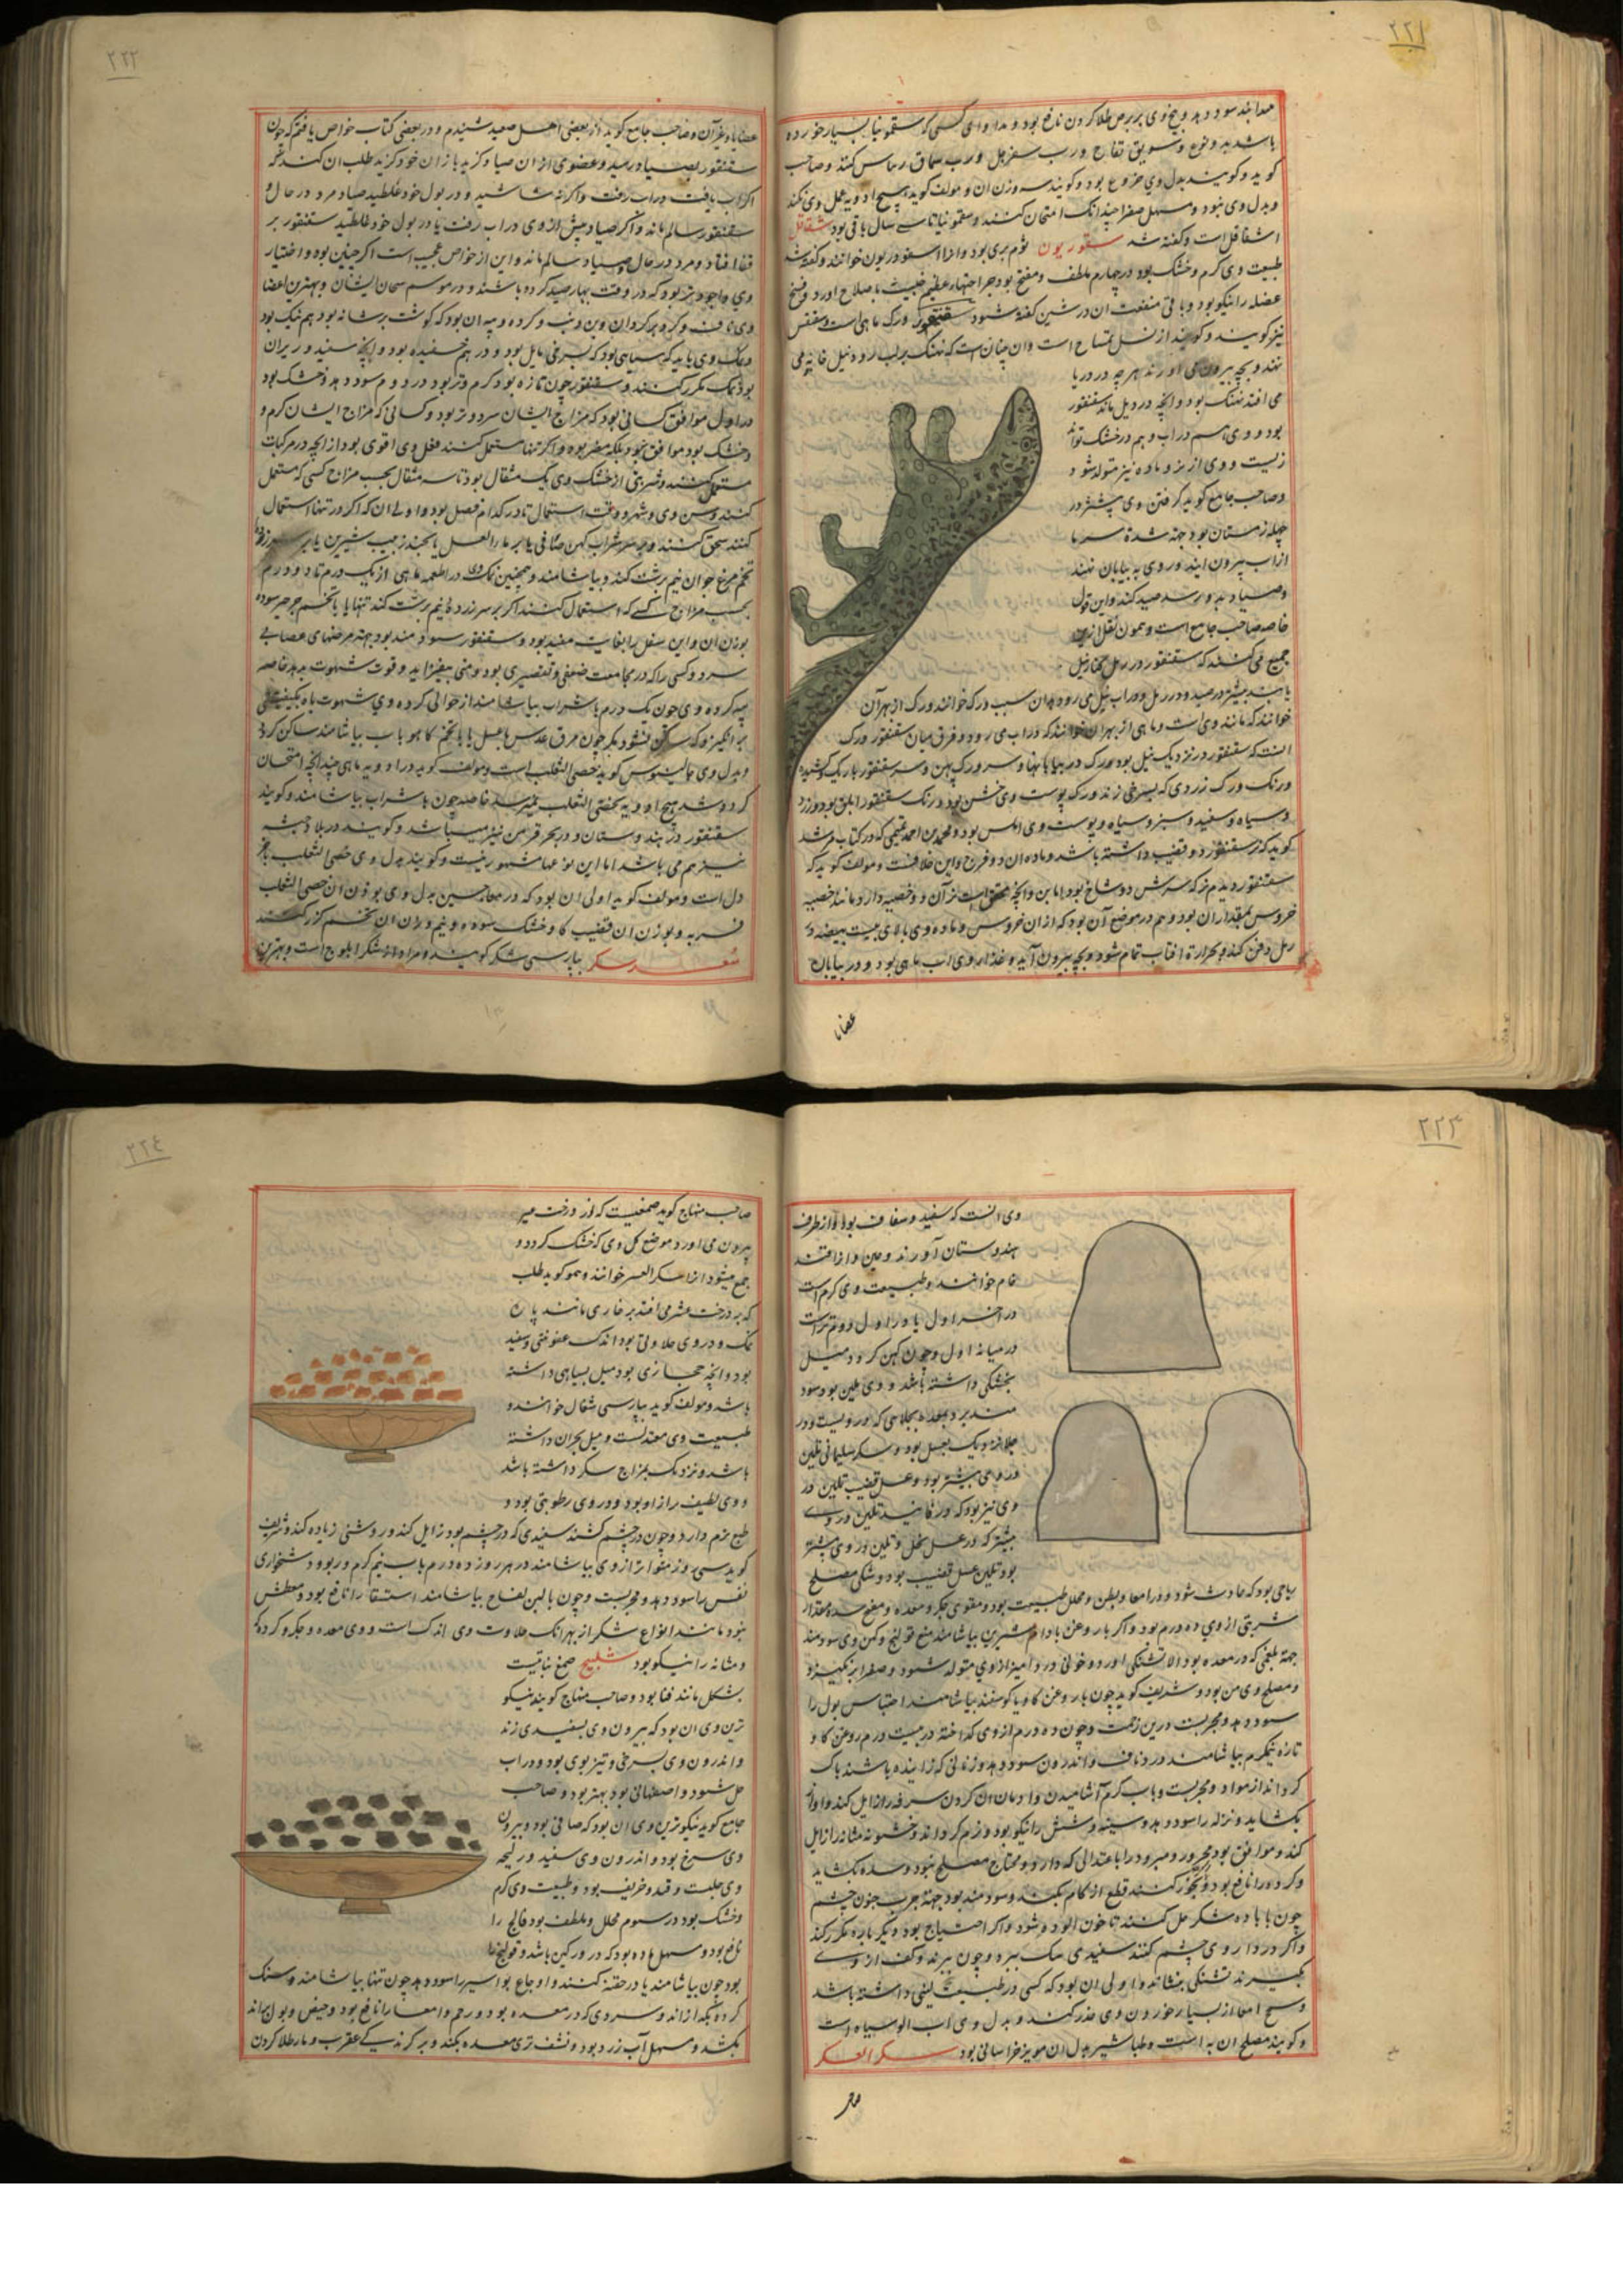 ۲۲۱
باشد بدو نوع وسویق تفاح ورب سفرجل ورب سماق
کوید وکویند بدل وی خروع بود وکویند سه وزن ان ومولف کوید هیچ ادویه عمل وی نکند
وبدل وی نبود ومسهل صفرا چندانک امتحان کنند وسقمونیا تا سی سال باقی بود شقاقل
اشقاقل است وکفته شد سقوریون ثوم بری بود وانرا اسقوردیون خوانند وکفته شد
طبیعت وی کرم وخشک بود در چهارم ملطف ومفتح بود جراحتهاء عظیم خبیث باصلاح اورد
عضله را نیکو بود وباقی منفعت ان در شین کفته شود سقنقور ورک ماهی است وسقنقس
نیز کویند وکویند از نسل تمساح است وان چنان است که نهنک بر لب رود نیل خایه می
نهند وبچه بیرون می اورند هرچه در دریا
می افتد نهنک بود وانچه در دیل ماند سقنقور
بود و وی هم در اب وهم در خشک تواند
زیست و وی از نر وماده نیز متولد شود
وصاحب جامع کوید کرفتن وی بیشتر در
چله زمستان بود جهة شدة سرما
از اب بیرون ایند وروی به بیابان نهند
وصیاد بدو برسد صید کند واین قول
خاصه صاحب جامع است وچون نقل ازین
جمیع می کنند که سقنقور در رمل کنار نیل
باشد بیشتر در صید ودر رمل ودر اب نیل می رود بدان سبب ورک خوانند ورک از بهر آن
خوانند که مانند وی است وماهی از بهر ان خوانند که در اب می رود وفرق میان سقنقور ورک
انست که سقنقور در نزدیک نیل بود ورک در بیابانها وسر ورک پهن وسر سقنقور باریک وکشیده
ورنک ورک زردی که بسرخی زند ورک پوست وی خشن بود ورنک سقنقور ابلق بود زرد
وسیاه وسفید وسبز وسیاه وپوست وی املس بود ومحمد بن احمد تمیمی که در کتاب مرشد
کوید که نر سقنقور دو قضیب داشته باشد وماده ان دو فرج واین خلافست ومولف کوید که
سقنقور دیدم نر که سرش دو شاخ بود اما بن وانچه محقق است نر آن دو خصیه دارد مانند خصیه
خروس بمقدار ان بود وهم در موضع آن بود که از ان خروس وماده وی بالای بیست بیضه در
رمل دفن کند وبحرارة افتاب تمام شود وبچه بیرون آید وغذاء وی در اب ماهی بود و در بیابان
عضایا
۲۲۲
عضایا وغیر آن وصاحب جامع کوید از بعضی اهل صعید شنیدم ودر بعضی کتاب خواص یافتم که چون
سقنقور بصیاد رسید وعضوی از ان صیاد کزید یا ز ان خود کزید طلب ان کند که
اکر اب یافت در اب رفت واکر نه شاشید ودر بول خود غلطید صیاد مرد در حال و
سقنقور سالم ماند واکر صیاد پیش از وی در اب رفت یا در بول خود غلطید سقنقور بر
قفا افتاد ومرد در حال وصیاد سالم ماند واین از خواص عجیب است اکر چنین بود واختیار
وی واجود نر بود که در وقت بهار صید کرده باشند ودر موسم سحان ایشان وبهترین اعضا
وعک وی باید که سیاهی بود که بسرخی مایل بود
بود نمک مکرر کنند وسقنقور چون تازه بود کرم وتر بود در دوم سود دهد وخشک بود
در اول موافق کسانی بود که مزاج ایشان سرد وتر بود وکسانی که مزاج ایشان کرم و
وخشک بود موافق نبود بلکه مضر بود واکر تنها مستعمل کنند فعل وی اقوی بود از انچه در مرکبات
مستعمل کنند وشربتی از خشک وی یک مثقال بود تا سه مثقال بحسب مزاج کسی که مستعمل
کنند وسن وی وشهر و وقت استعمال تا در کدام فصل بود واولی ان که اکر در تنها استعمال
تخم مرغ جوان نیم برشت کند وبیاشامند وهمچنین نمک وی در اطعمه ماهی از یک درم تا دو درم
بحسب مزاج کسی که استعمال کنند اکر بر سر زرده نیم برشت کند تنها یا با تخم جرجیر سوده
بوزن ان واین سفل را بغایت مفید بود وسقنقور سودمند بود جهة مرضهای عصابی
سرد وکسی را که در مجامعت ضعفی وتقصیری بود ومنی بیفزاید وقوت شهوت بدهد خاصه
پیه کرده وی چون یک درم با شراب بیاشامند از حوالی کرده وی شهوت باه
برانکیزد که ساکن نشود مکر چون مرق عدس با عسل یا با تخم کاهو باب بیاشامند ساکن کردد
وبدل وی جالینوس کوید خصی الثعلب است ومولف کوید در ادویه باهی چندانچه امتحان
کرده شد هیچ ادویه بخصی الثعلب نمیرسد خاصه چون با شراب بیاشامند وکویند
سقنقور در هند وستان ودر بحر قرمن نیز میباشد وکویند در بلاد حبشه
نیز هم می باشد اما این نوعها مشهور نیست وکویند بدل وی خصی الثعلب
دل است ومولف کوید اولی ان بود که در معاجین بدل وی بوزن ان خصی الثعلب
فربه وبوزن ان قضیب کاو خشک سوده ونیم وزن ان تخم کزر کنند
سکر بپارسی شکر کویند ومراد از شکر ابلوج است وبهترین
۲۲۳
وی انست که سفید وشفاف بود واز طرف
هندوستان آورند
خام خوانند وطبیعت وی کرم است
در اخر اول یا در اول دوم تر است
در میانه اول وچون کهن کردد میل
بخشکی داشته باشد و وی ملین بود سود
جلا نزدیک بعسل بود وسکر سلیمانی ملین
در وی بیشتر بود وعسل قضیب تلیین در
وی نیز بود که در فانید تلیین در وی
بیشتر که در عسل نحل وتلیین در وی بیشتر
بود تلیین عسل قضیب بود وشکر مصلح
ریاحی بود که حادث شود در امعا وبطن ومحلل طبیعت بود ومقوی جکر ومعده ومفتح سده ومقدار
شربتی از وی ده درم بود واکر با روغن بادام شیرین بیاشامند منع قولنج وکهن وی سودمند
جهة بلغمی که در معده بود الا تشنکی اورد وخونی درد امیز از وی متولد شود وصفرا برانکیزد
ومصلح وی من بود وشریف کوید چون با روغن کاو یا کوسفند بیاشامند احتباس بول را
سود دهد ومجربست درین زحمت وچون ده درم از وی کداخته در بیست درم روغن کاو و
تازه نیمکرم بیاشامند درد ناف واندرون سود دهد وزنانی که زاینده باشند پاک
کرداند از مواد ومجربست وباب کرم آشامیدن وادمان ان کردن سرفه را زایل کند واواز
بکشاید ونزله را سود دهد وسینه وشش را نیکو بود ونرم کرداند وخشونة مثانه را زایل
کند وموافق بود محرور ومبرود را باعتدالی که دارد ومحتاج مصلح نبود وسده بکشاید
وکرده را نافع بود وبخور کنند قطع زکام بکند وسودمند بود جهة جرب جفون چشم
چون با باده شکر حل کنند تا خون الوده شود واکر احتیاج بود دیکر باره مکرر کند
واکر در داروی چشم کنند سفیدی سبک ببرد وچون ببزند وکف از وی
بکیرند تشنکی بنشاند واولی ان بود که کسی در طبیعت لینی داشته باشد
وسحج امعا از بسیار خوردن وی حذر کنند وبدل وی اب الو سیاه است
وکویند مصلح ان به است وطباشیر بدل ان مویز خراسانی بود سکر العشر
صاحب
۲۲٤
صاحب منهاج کوید صمغیست که از درخت عشر
بیرون می اورد وموضع کل وی که خشک کردد و
جمع میشود انرا سکر العشر خوانند وهمو کوید طلب
که بر درخت عشر می افتد بر خاری مانند پارهٔ
نمک ودر وی حلاوتی بود اندک عفونتی وسفید
بود وانچه حجازی بود میل بسیاهی داشته
باشد ومولف کوید بپارسی شغال خوانند و
طبیعت وی معتدلست ومیل بحران داشته
باشد ونزدیک بمزاج سکر داشته باشد
و وی لطیف تر از او بود ودر وی رطوبتی بود و
طبع نرم دارد وچون در چشم کشند سفیدی که در چشم بود زایل کند وروشنی زیاده کند وشریف
کوید سی روز متواتر از وی بیاشامند در هر روز ده درم باب نیم کرم در بود ودشخواری
نفس را سود دهد ومجربست وچون با لبن لقاح بیاشامند استسقا را نافع بود ومعطش
نبود مانند انواع شکر از بهر انک حلاوت وی اندک است و وی معده وجکر وکرده
ومثانه را نیکو بود سکبینج صمغ نباتیست
بشکل مانند قثا بود وصاحب منهاج کوید نیکو
ترین وی ان بود که بیرون وی بسفیدی زند
واندرون وی بسرخی وتیزبوی بود ودر اب
حل شود واصفهانی بود بهتر بود وصاحب
جامع کوید نیکوترین وی ان بود که صافی بود وبیرون
وی سرخ بود واندرون وی سفید ورایحه
وخشک بود در سوم محلل وملطف بود فالج را
نافع بود ومسهل ماده بود که در ورکین باشد وقولنج را
بود چون بیاشامند یا در حقنه کنند واوجاع بواسیر را سود دهد چون تنها بیاشامند وسنک
کرده بکدازاند وسردی که در معده بود ورحم وامعا را نافع بود وحیض وبول براند
بکشد ومسهل آب زرد بود ونشف تری معده بکند وبر کزندکی عقرب ومار طلا کردن